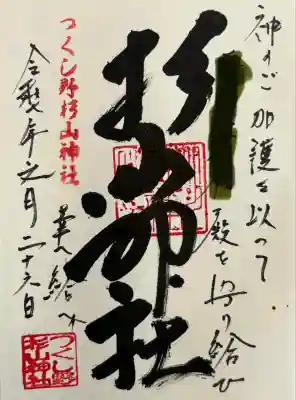 神のご加護を以って
殿を守り給ひ
杉山神社
幸へ給へ
つくし野杉山神社
令和 年 月二十六日
つくし野
杉山神社